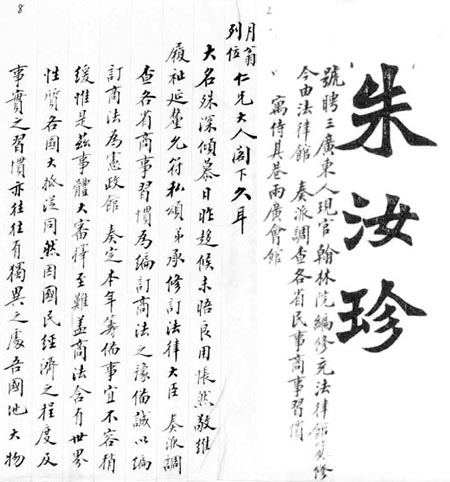 2
朱汝珍
號聘三廣東人現官翰林院編修充法律館纂修
今由法律館 奏派調查各省民事商事習慣
寓侍其巷兩廣會館
月翁
列位 仁兄大人閣下久耳
大名殊深傾慕日昨趨候未晤良用悵然敬維
履祉延釐允符私頌弟承修訂法律大臣 奏派調
查各省商事習慣為編訂商法之豫備誠以編
訂商法為憲政館 奏定本年籌備事宜不容稍
緩惟是茲事體大審擇至難蓋商法含有世界
性質各國大抵從同然因國民經濟之程度及
事實之習慣亦往往有獨異之處各國地大物
8